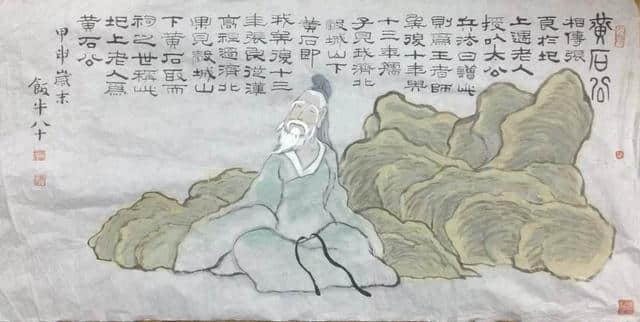 黄石公
相傳張
良於圯
上遇老人
授以太公
兵法曰讀此
則為王者師
矣後十年興
十三年孺
子見我濟北
榖城山下
黄石即
我矣後十三
年張良從漢
高祖過濟北
果見榖城山
下黄石取而
祠之世稱此
圯上老人為
黄石公
甲申歲末
飯牛八十